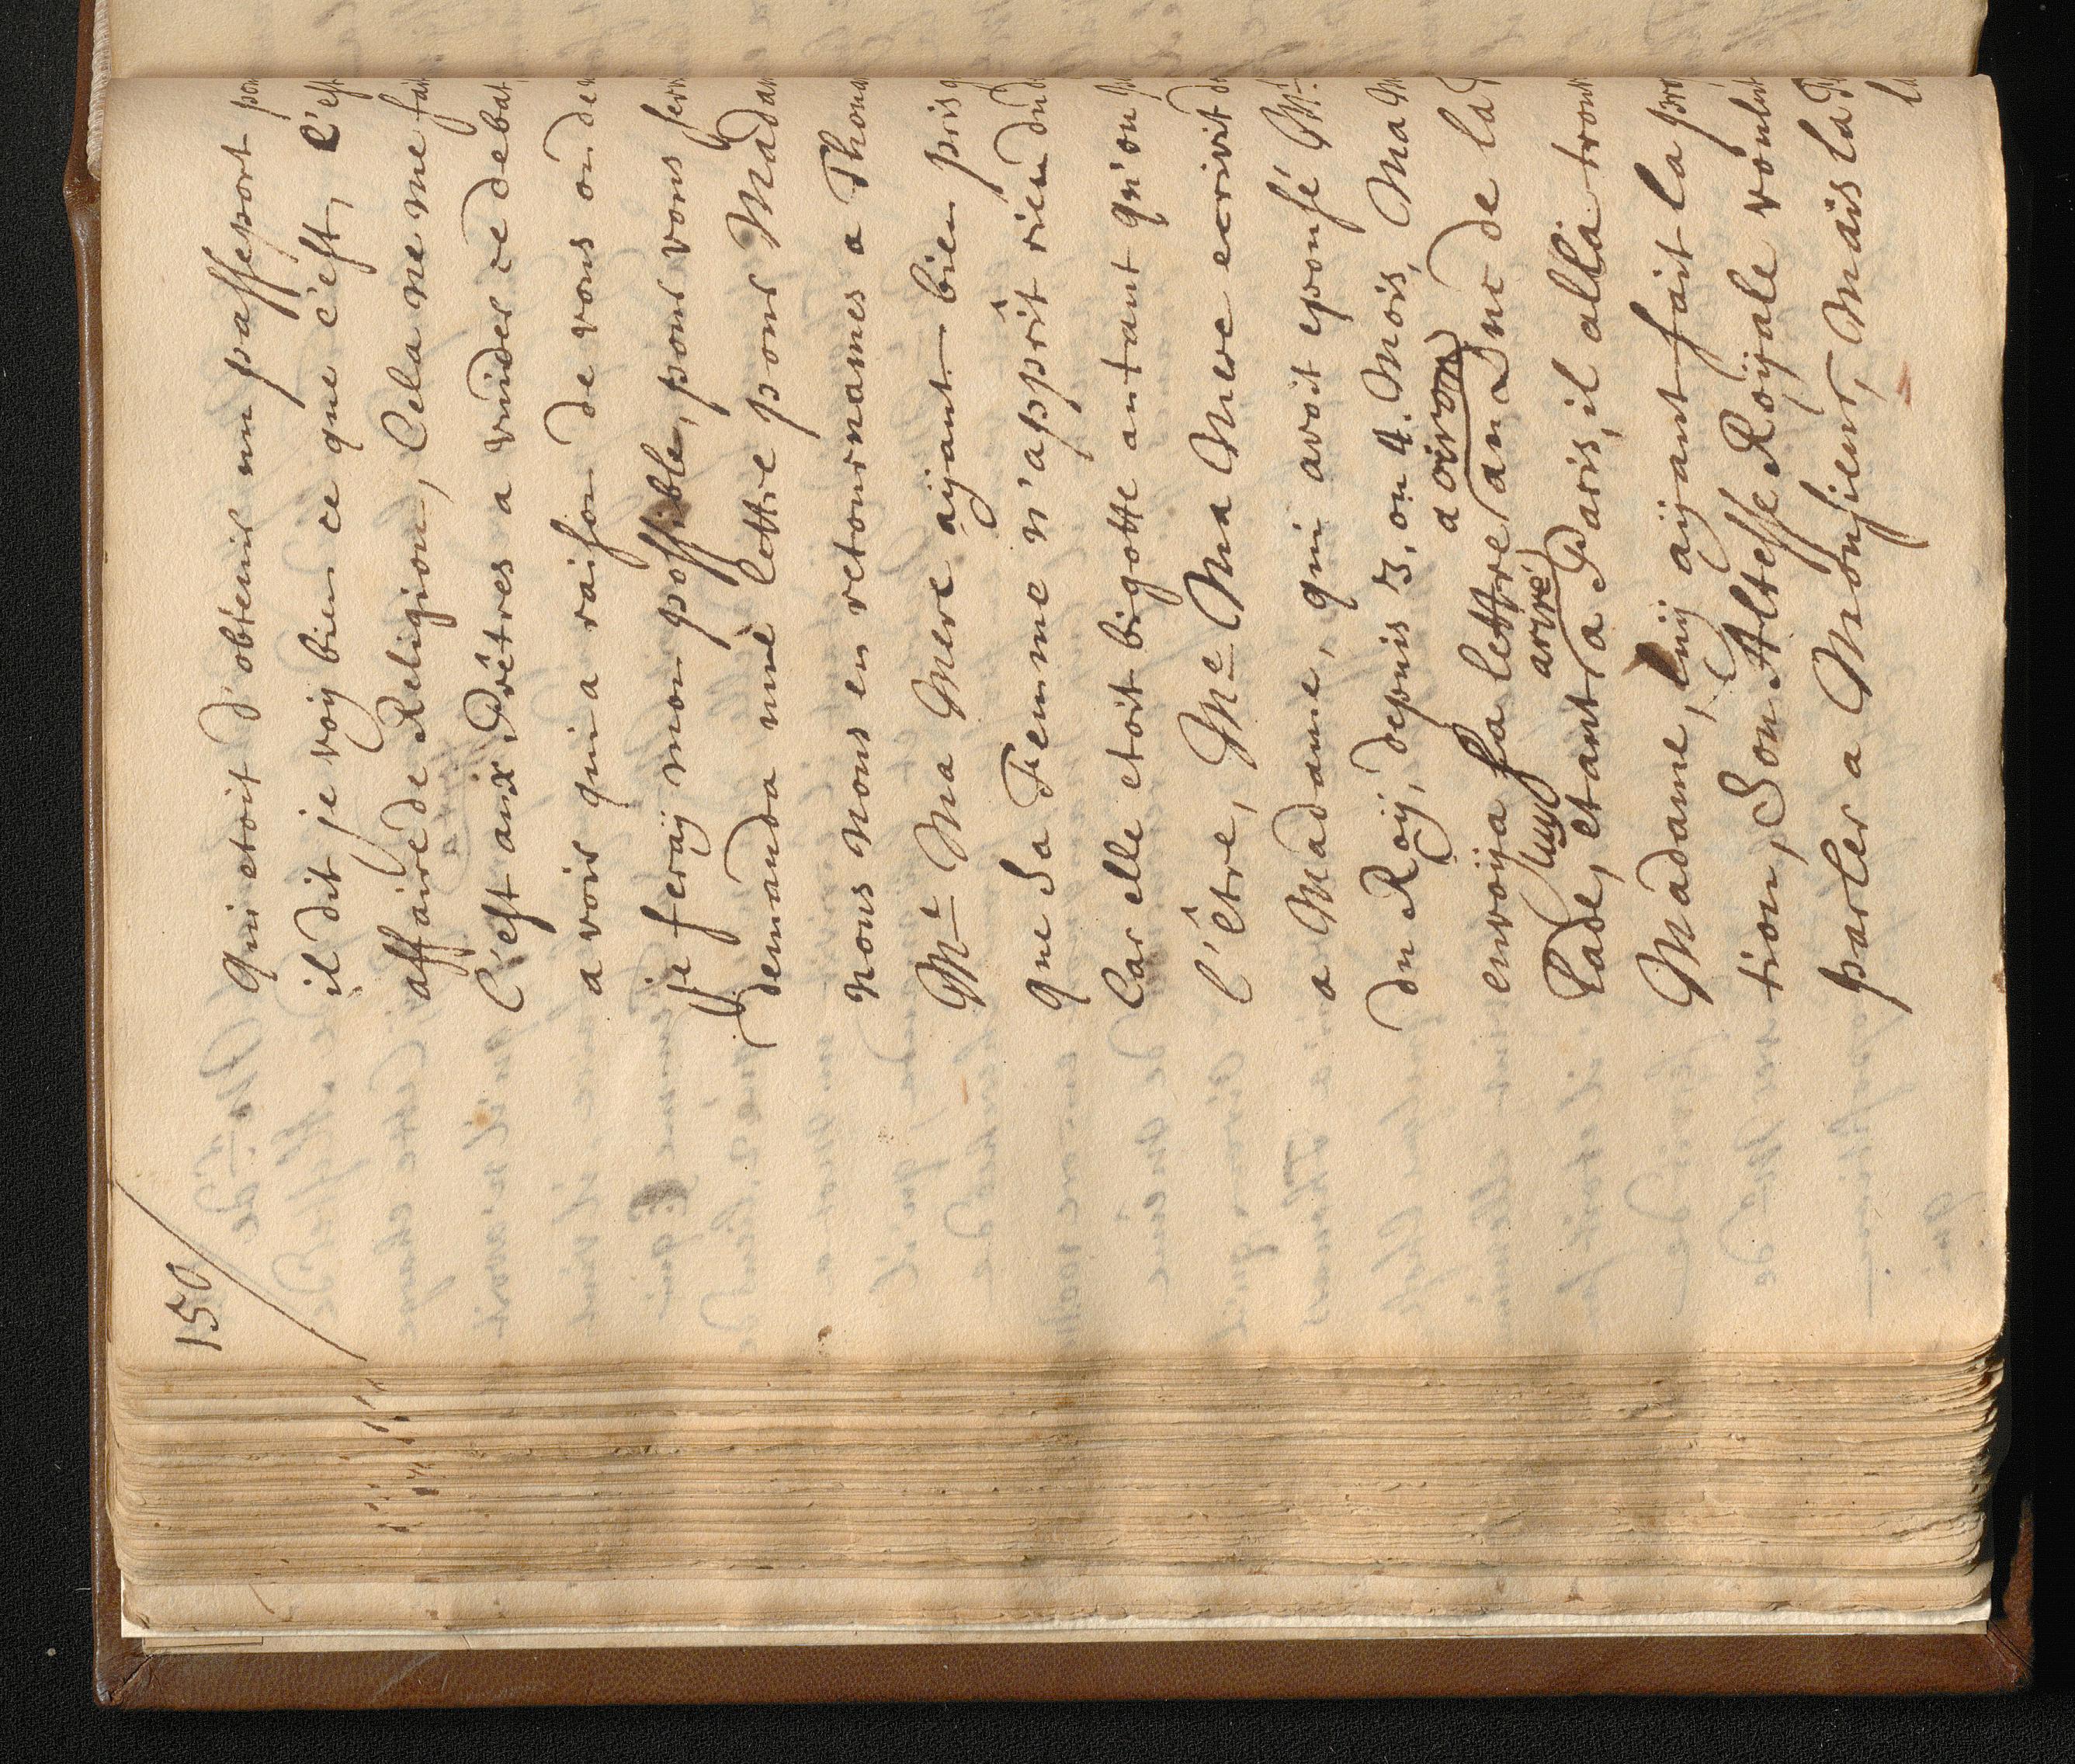 150
qui etoit d'obtenir un passeport
il dit je voÿ bien ce que c'est, C'est
affaire de Religion, Cela ne me
C'est aux Prêtres a vuider ce debat,
avoir qui a raison de vous ou de
je feraÿ mon possible, pour vous
demanda une lettre pour
nous nous en retournames a
Me Ma Mere aÿant bien pris
que Sa Femme n'apprît rien du
Car elle etoit bigotte autant qu'on
l'être, Me Ma Mere ecrivit
a Madame, qui avoit epousé Mr
du Roÿ, depuis 3, ou 4. Mois, Ma
a oiron
envoÿa sa lettre au Duc de la
luy arrivé
lade, etant a Paris, il alla
Madame, luÿ aÿant fait la
tion, Son Altesse Roÿale voulut
parler a Monsieur, Mais la